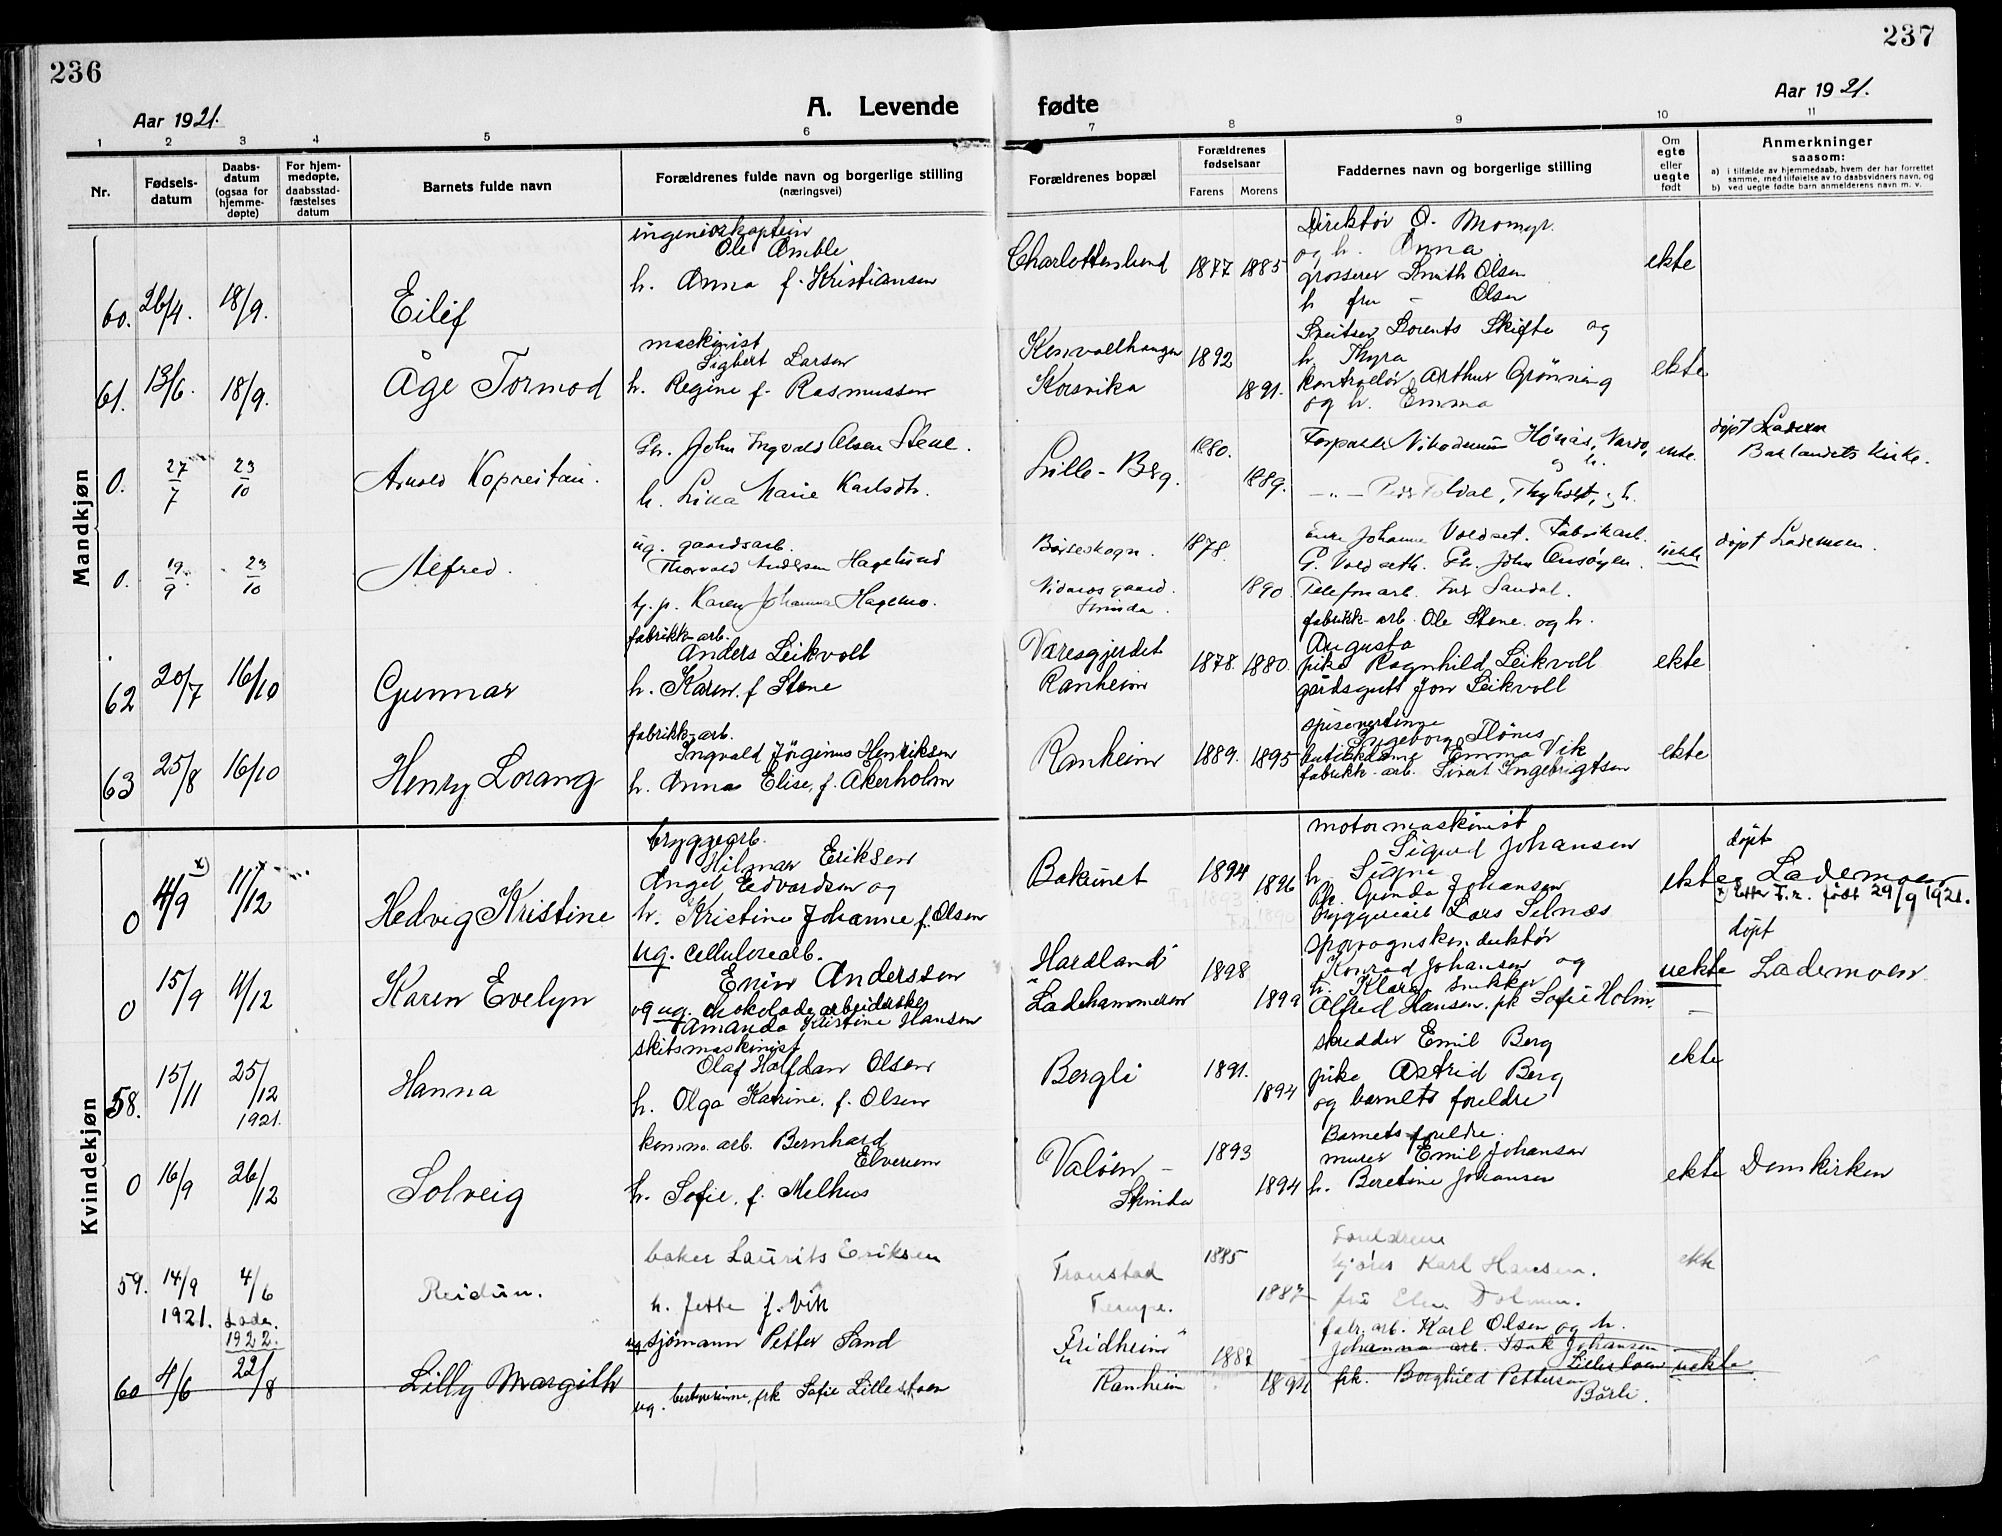 236
237
Aar 1921.
A. Levende fødte
Aar 1921.
1 2 3 4 5 6 7 8 9 10 11
Nr.
Fødsels-
datum
Daabs-
datum
(ogsaa for
hjemme-
døpte)
For hjem-
medøpte,
daabsstad-
fæstelses
datum
Barnets fulde navn
Forældrenes fulde navn og borgerlige stilling
(næringsvei)
Forældrenes bopæl
Forældrenes
fødselsaar
Farens Morens
Faddernes navn og borgerlige stilling
Om
egte
eller
uegte
født
Anmerkninger
saasom:
a) i tilfælde av hjemmedaab, hvem der har forrettet
samme, med tilføielse av to daabsvidners navn, og
b) ved uegte fødte barn anmelderens navn m. v.
Mandkjøn
60. 26/4. 18/9. Eilif
ingeniørkaptein
Ole Amble
h. Anna f. Kristiansen
Charlottenlund 1877 1885
Direktør O.
og h. Anna
grosserer Smith Olsen
h fru – Olsen
ekte
61. 13/6. 18/9. Åge Tormod
maskinist
Sigbert Larsen
h. Regine f. Rasmussen
Korsvika
1892 1891.
Lorents Skifte og
h. Thyra
kontrollør Arthur Grønning
og h. Emma
ekte
0. 27/7 23/10 Arnold
John Ingvald Olsen Stene.
h. Lina Marie Karlsdtr.
Lille-Berg. 1880. 1889.
ekte.
døpt Lademoen
Baklandets kirke.
0. 19/9 23/10 Alfred.
ug. gaardsarb.
Thorvald Andersen Hagelund
Karen Johanna Hagemo.
1878. 1890
Nidarosgaard.
Strinda.
Enke Johanna Voldset. Fabrikarb.
Telefonarb. Sandal.
uekte
døpt Lademoen.
62 20/7 16/10 Gunnar
fabrikk-arb.
Anders Leikvoll
h. Karen. f Stene
Væresgjerdet
Ranheim
1878. 1880.
fabrikk-arb. Ole Stene. og h.
Augusta
pike Ragnhild Leikvoll
gårdsgutt Jon Leikvoll
ekte
63 25/8 16/10 Henry Lorang
fabrikk-arb.
Ingvald Jörginus Henriksen
h. Anna Elise, f. Akerholm
Ranheim 1889. 1895
spisevertinne
Ingeborg Flönes
butikkdame Emma Vik
fabrikk-arb. Sivert Ingebrigtsen
ekte
Kvindekjøn
0 4/9 x) 11/12 Hedvig Kristine
bryggearb.
Hilmar Eriksen
Angel Edvardsen og
h. Kristine Johanne f. Olsen
Bakunet 1894 1896
motormaskinist
Sigurd Johansen
h. Signe
Gunda Johansen
bryggeriarb Lars Selnæs
ekte
døpt
Lademoen
x) Etter F.r. født 29/9 1921.
0 15/9 4/12 Karen Evelyn
ug. cellulosearb.
Enin Andersson
og ug. chokoladearbeiderske
Amanda Kristine Hansen
Harsland
Ladehammeren
1898
sporvognskonduktør
Konrad Johansen og
h. Klara, snekker
Alfred Hansen. frk Sofie Holm.
uekte
døpt
Lademoen
58. 15/11 25/12 1921. Hanna
skitsmaskinist
Olaf Halfdan Olsen
h. Olga Katrine. f. Olsen
Bergli 1891. 1894
skredder Emil Berg
pike Astrid Berg
og barnets foreldre
ekte
0 16/9 26/12 Solveig
komm. arb. Bernhard
Elverum
h. Sofie, f. Melhus
Valöen –
Strinda
1893 1894
Barnets foreldre.
murer Emil Johansen
h. Beretine Johansen
ekte Domkirken
59. 14/9 1921. 4/6 Lade. 1922. Reidun.
baker Laurits Eriksen
h. Jette f. Vik
Tronstad
Tempe.
1885 1887
Foreldrene
Karl Hansen.
fru
ekte
60 4/6 22/8 Lilly Margith
ug sjømann Petter Sand
ug. bestyrerinne, frk Sofie Lillestoen
Fridheim
Ranheim
1887
fabr. arb. Karl Olsen og h.
Johanna arb. Isak Johansen
Lillestoen
frk. Borghild Pettersen
Börli.
uekte